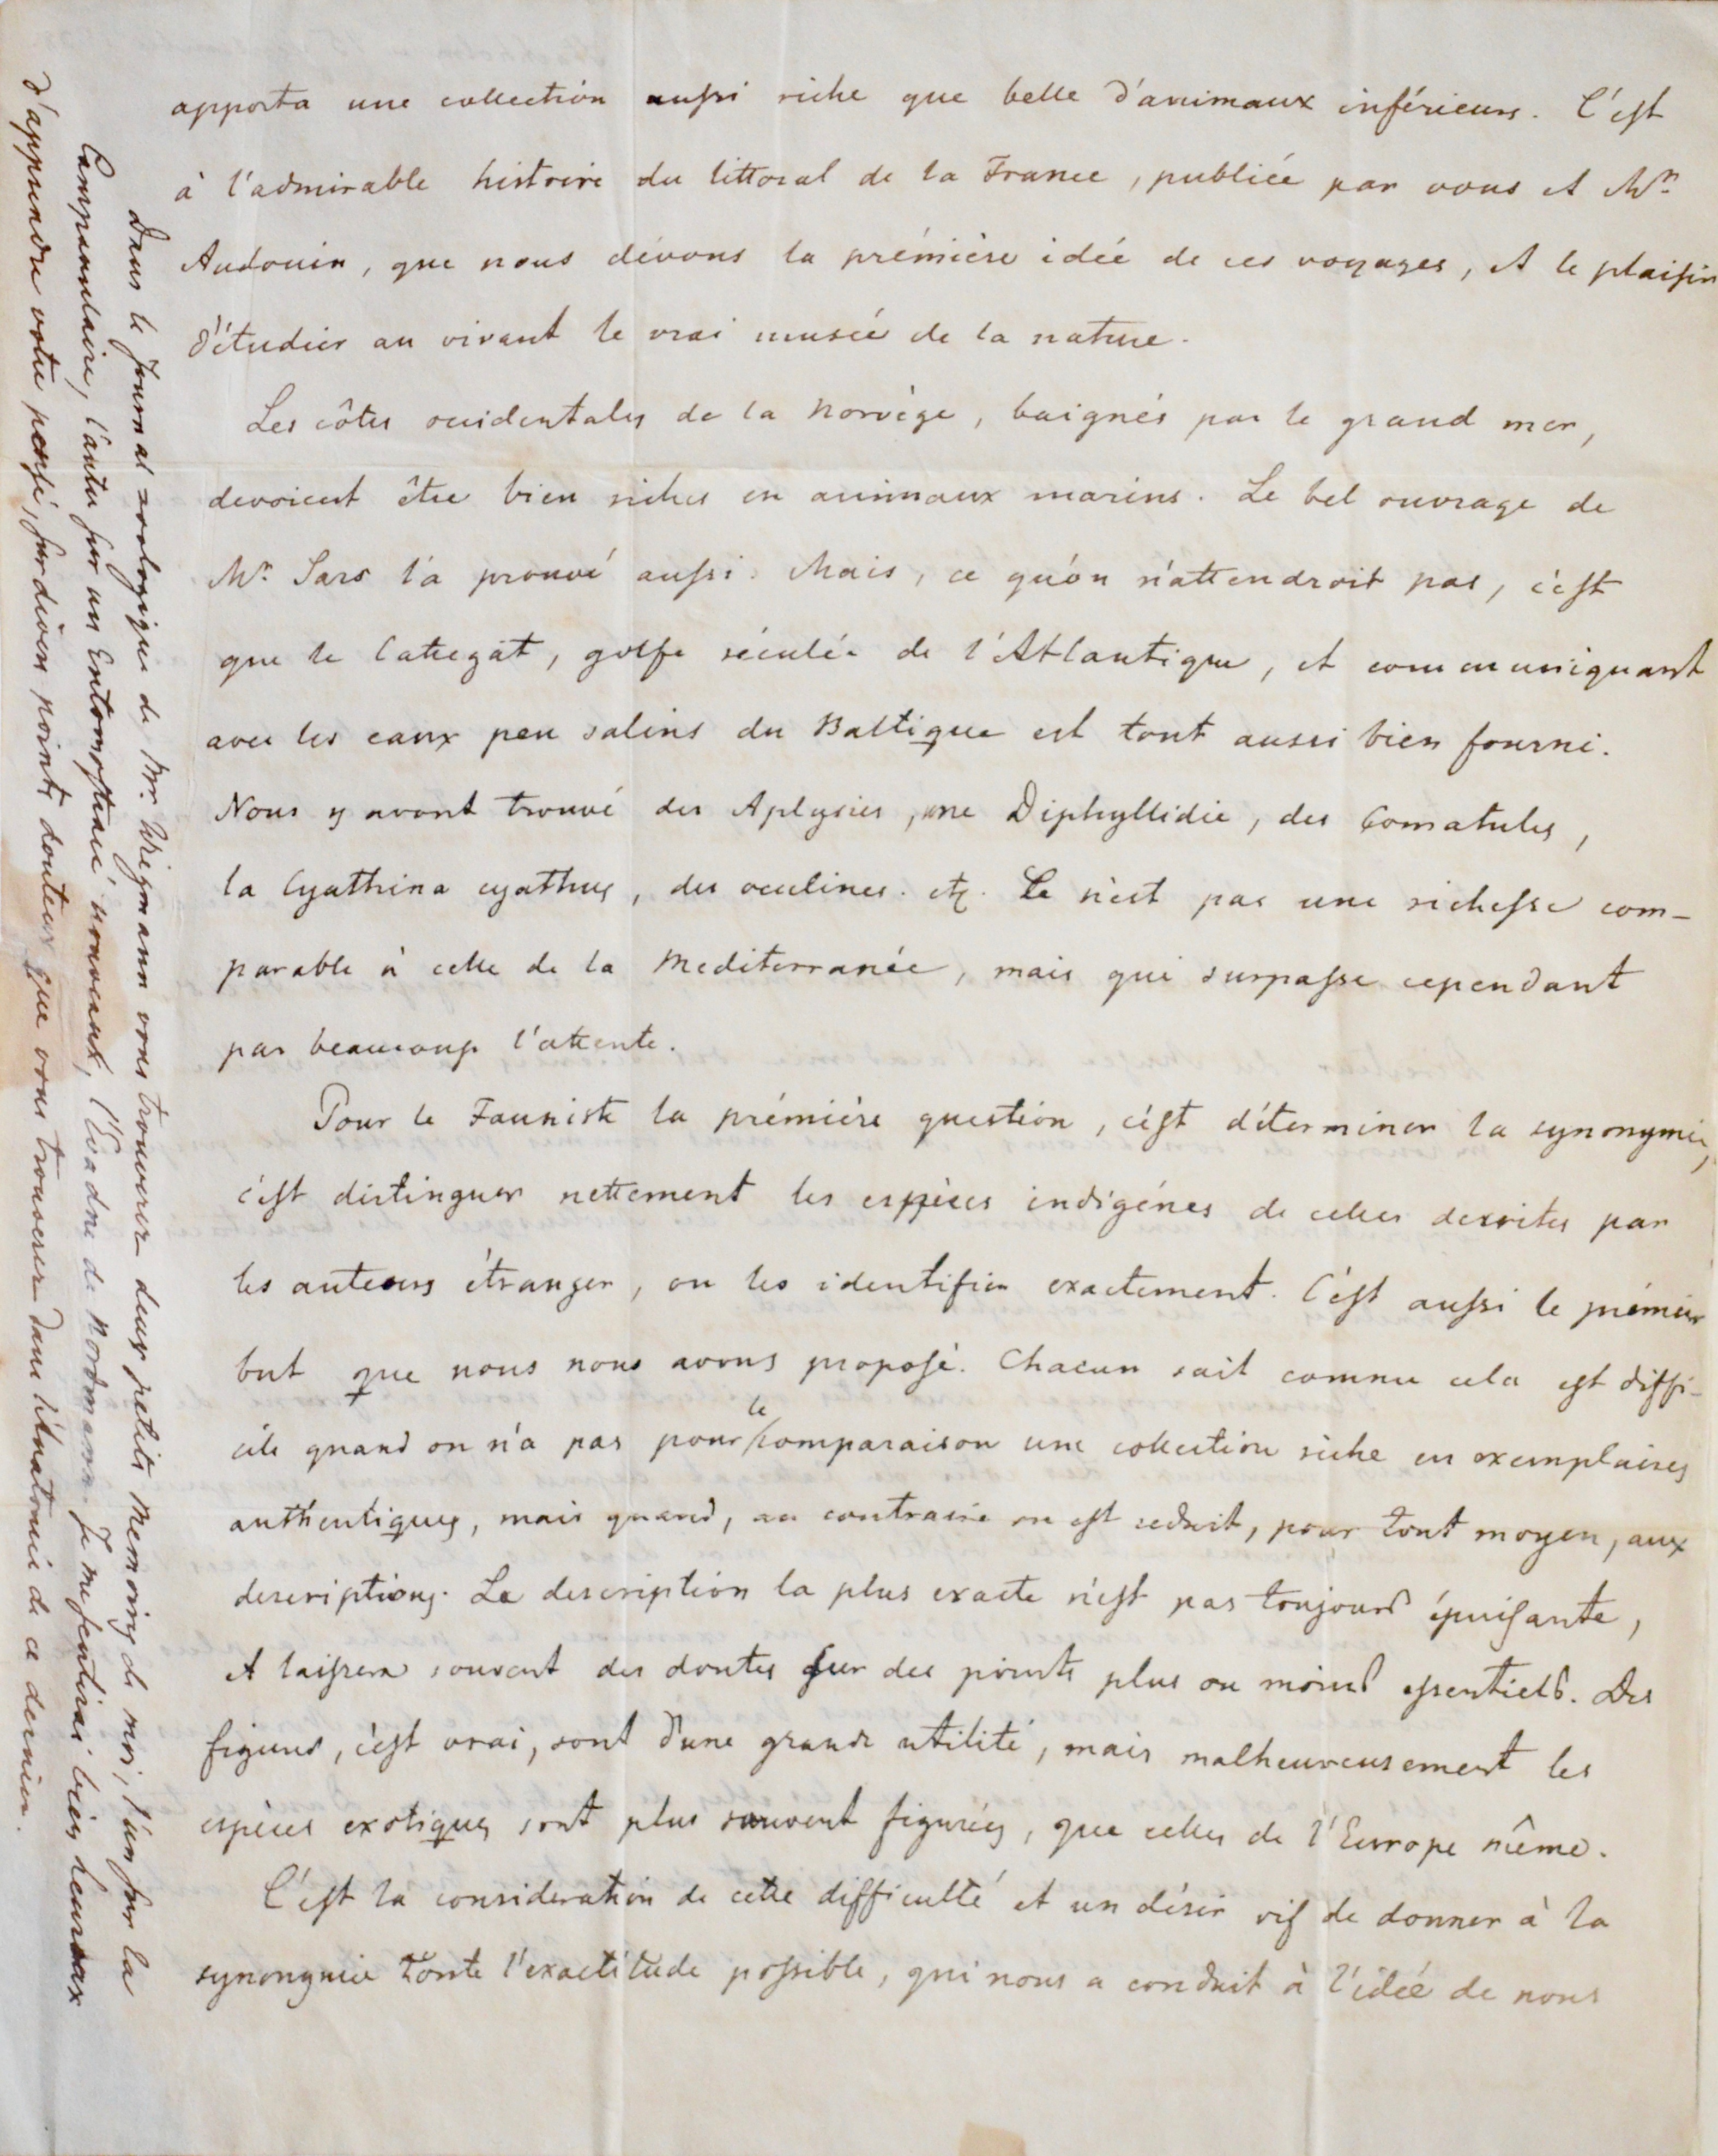 apporta une collection aussi riche que belle d'animaux inférieurs. C'est
à l'admirable histoire du littoral de la France, publiée par vous et Mr
Audouin, que nous dévons la prémière idée de ces voyages, et le plaisir
d'étudier au vivant le vrai musée de la nature.
Les côtes occidentales de la Norvège, baignés par le grand mer,
devoient être bien riches en animaux marins. Le bel ouvrage de
Mr. Sars l'a prouvé aussi. Mais, ce qu'on n'attendroit pas, c'est
que le Cattegat, golfe réculée de l'Atlantique, et communiquant
avec les eaux peu salins du Baltique est tout aussi bien fourni.
Nous y avont trouvé des Aplysies, une Diphyllidie, des Comatules,
la Cyathina cyathus, des oculines. etc. Ce n'est pas une richesse com-
parable à celle de la Mediterranée, mais qui surpasse cependant
par beaucoup l'attente.
Pour le Fauniste la prémière question, c'est déterminer la synonymie,
c'est distinguer nettement les espèces indigénes de celles descrites par
les auteurs étranger, ou les identifier exactement. C'est aussi le prémier
but que nous nous avons proposé. Chacun sait comme cela est diffi-
cile quand on n'a pas pour le comparaison une collection riche en exemplaires
authentiques, mais quand, au contraire on est reduit, pour tout moyen, aux
descriptions. La description la plus exacte n'est pas toujours épuisante,
et laissera souvent des doutes sur des points plus ou moins essentiels. Des
figures, c'est vrai, sont d'une grande utilité, mais malheureusement les
espèces exotiques sont plus souvent figurées, que celles de l'Europe même.
C'est la consideration de cette difficulté et un désir vif de donner à la
synonymie toute l'exactitude possible, qui nous a conduit à l'idée de nous
Dans le Journal zoologique de Mr. Wiegmann vous trouverez deux petits Memoires de moi, l'un sur la
Campanulaire, l'autre sur un Entomostracé nouveaux, l'Evadne de Nordmann. Je me sentirai bien heureux
d'apprendre votre pensé, sur divers points douteux que vous trouverez dans l'Anatomie de ce dernier.